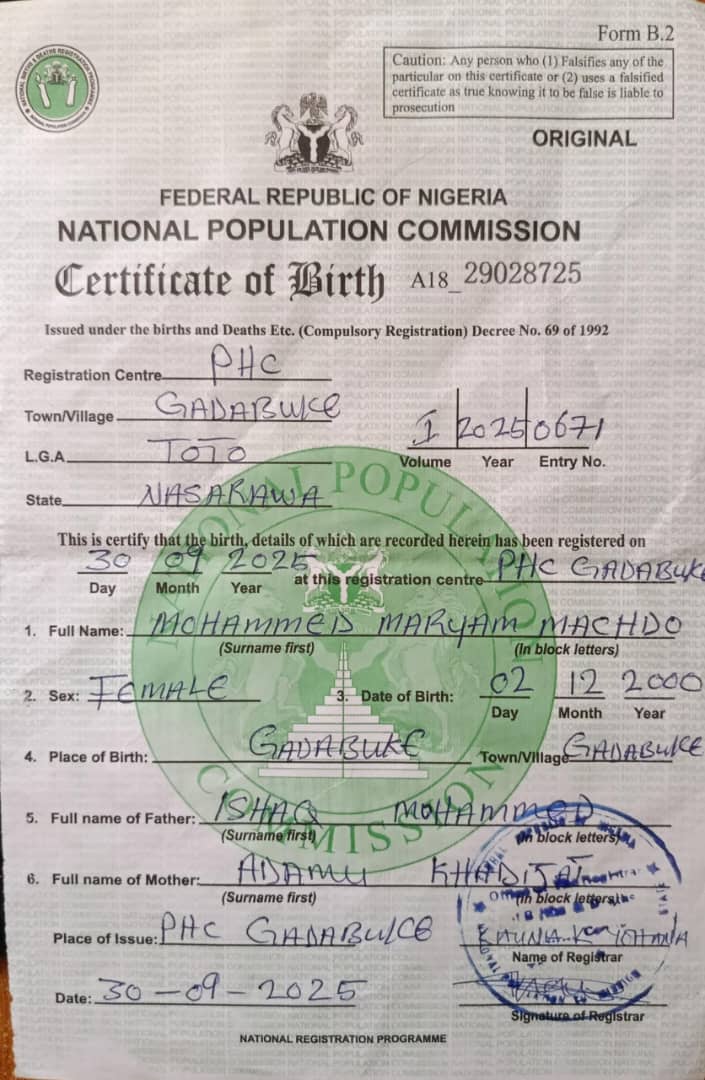 Form B.2
Caution: Any person who (1) Falsifies any of the
particular on this certificate or (2) uses a falsified
certificate as true knowing it to be false is liable to
prosecution
ORIGINAL
FEDERAL REPUBLIC OF NIGERIA
NATIONAL POPULATION COMMISSION
Certificate of Birth A18_29028725
Issued under the births and Deaths Etc. (Compulsory Registration) Decree No. 69 of 1992
Registration Centre PHC
Town/Village GADABUKE
L.G.A. TOTO
I 2025 0671
Volume Year Entry No.
State NASARAWA
This is certify that the birth, details of which are recorded herein has been registered on
30 09 2025 at this registration centre PHC GADABUKE
Day Month Year
1. Full Name: MOHAMMED MARYAM MACHDO
(Surname first) (In block letters)
2. Sex: FEMALE 3. Date of Birth: 02 12 2000
Day Month Year
4. Place of Birth: GADABUKE Town/Village GADABUKE
5. Full name of Father: ISHAQ MOHAMMED
(Surname first) (In block letters)
6. Full name of Mother: ADAMU KHADIJAT
(Surname first) (In block letters)
Place of Issue: PHC GADABUKE KAUNA K YOHANA
Name of Registrar
Date: 30-09-2025
Signature of Registrar
NATIONAL REGISTRATION PROGRAMME
NATIONAL POPULATION COMMISSION